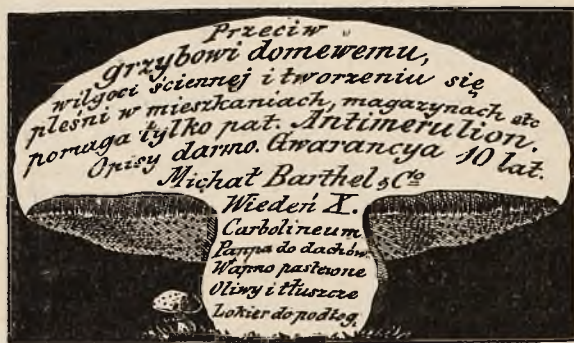 Przeciw
grzybowi domewemu,
wilgoci ściennej i tworzeniu się
pleśni w mieszkaniach, magazynach etc
pomaga tylko pat. Antimerulion.
Opisy darmo. Gwarancya 10 lat.
Michał Barthel & Cie
Wiedeń X.
Carbolineum
Pappa do dachów.
Wapno pastewne
Oliwy i tłuszcze
Lokier do podłog.